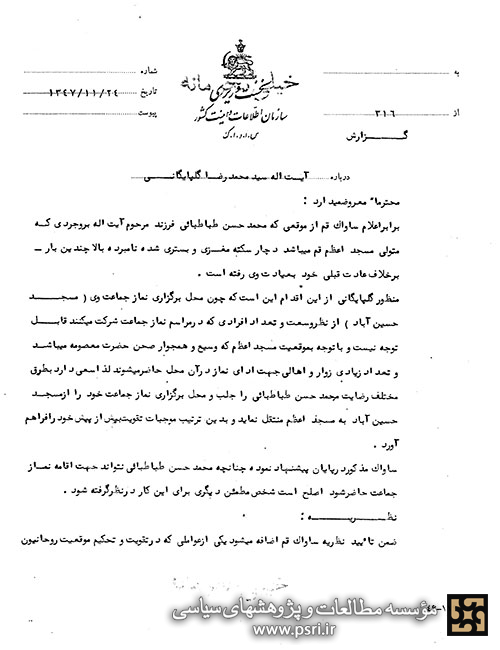 خیلی محرمانه
نخست وزیری
سازمان اطلاعات و امنیت کشور
س.ا.و.ا.ک
به
از ۳۱۶
گزارش
شماره
تاریخ ۱۳۴۷/۱۱/۲۴
پیوست
درباره آیت اله سید محمد رضا گلپایگانی
محترماً معروضمیدارد :
برابراعلام ساواک قم از موقعی که محمد حسن طباطبائی فرزند مرحوم آیت اله بروجردی که
متولی مسجد اعظم قم میباشد دچار سکته مغزی و بستری شده نامبرده بالا چندین بار ـ
برخلاف عادت قبلی خود بعیادت وی رفته است .
منظور گلپایگانی از این اقدام این است که چون محل برگزاری نماز جماعت وی ( مسجد
حسین آباد ) از نظر وسعت و تعداد افرادی که در مراسم نماز جماعت شرکت میکنند قابل
توجه نیست و با توجه بموقعیت مسجد اعظم که وسیع و همجوار صحن حضرت معصومه میباشد
و تعداد زیادی زوار و اهالی جهت ادای نماز در آن محل حاضر میشوند لذا سعی دارد بطرق
مختلف رضایت محمد حسن طباطبائی را جلب و محل برگزاری نماز جماعت خود را از مسجد
حسین آباد به مسجد اعظم منتقل نماید و بدین ترتیب موجبات تقویت بیش از پیش خود را فراهم
آورد .
ساواک مذکور در پایان پیشنهاد نموده چنانچه محمد حسن طباطبائی نتواند جهت اقامه نماز
جماعت حاضر شود اصلح است شخص مطمئن دیگری برای این کار در نظر گرفته شود .
نظریه :
ضمن تائید نظریه ساواک قم اضافه میشود یکی از عواملی که در تقویت و تحکیم موقعیت روحانیون
مؤسسه مطالعات و پژوهشهای سیاسی
www.psri.ir